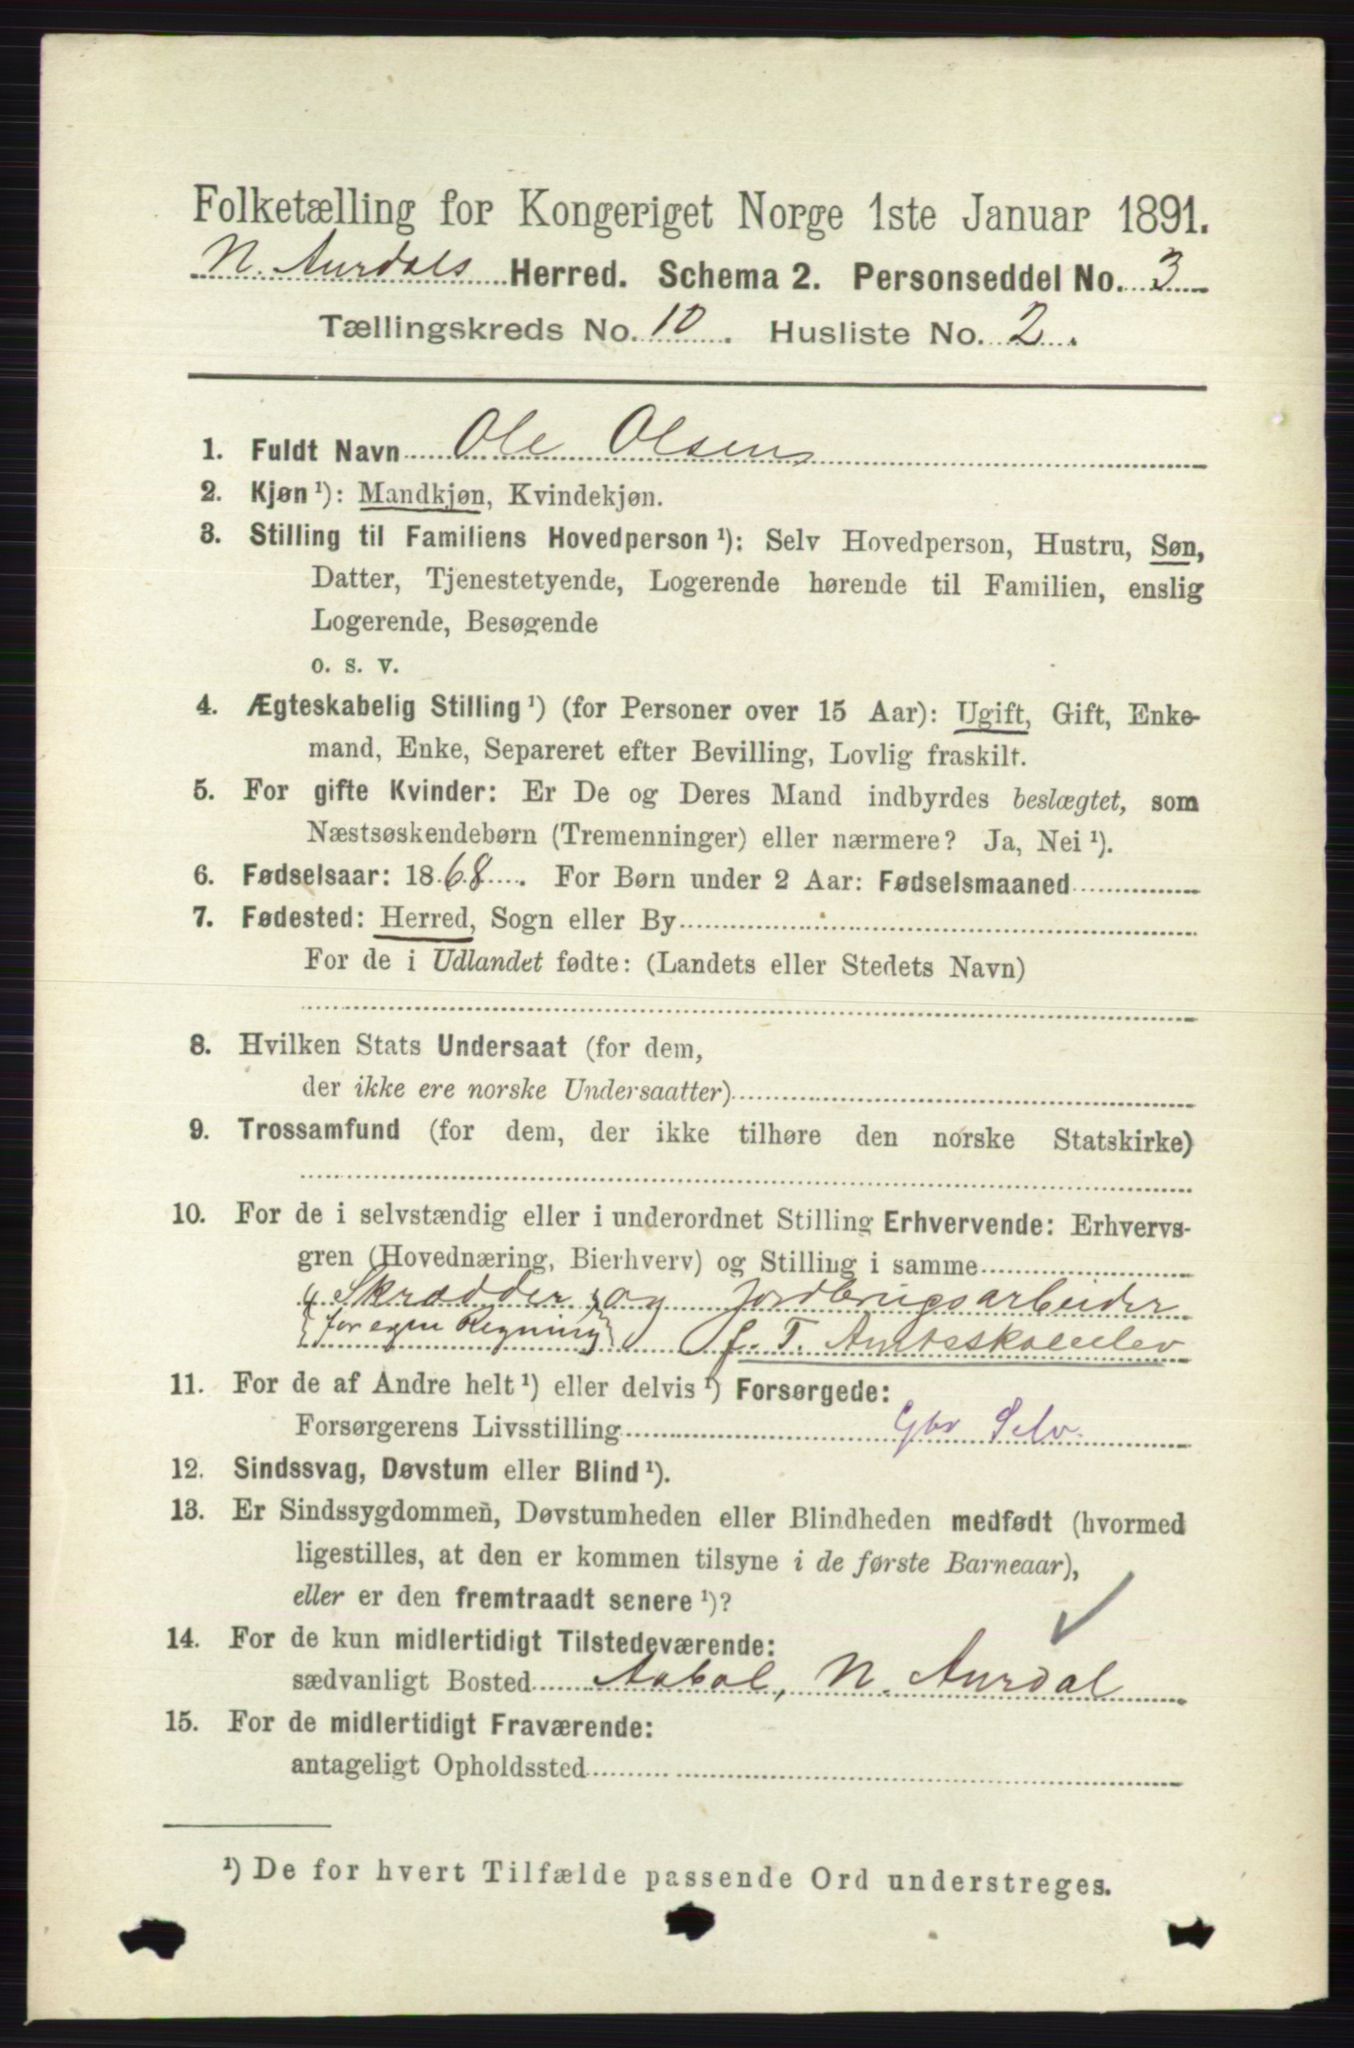 Folketælling for Kongeriget Norge 1ste Januar 1891.
N. Aurdals Herred. Schema 2. Personseddel No. 3
Tællingskreds No. 10. Husliste No. 2.
1. Fuldt Navn Ole Olsen
2. Kjøn ¹): Mandkjøn, Kvindekjøn.
3. Stilling til Familiens Hovedperson ¹): Selv Hovedperson, Hustru, Søn,
Datter, Tjenestetyende, Logerende hørende til Familien, enslig
Logerende, Besøgende
o. s. v.
4. Ægteskabelig Stilling ¹) (for Personer over 15 Aar): Ugift, Gift, Enke-
mand, Enke, Separeret efter Bevilling, Lovlig fraskilt.
5. For gifte Kvinder: Er De og Deres Mand indbyrdes beslægtet, som
Næstsøskendebørn (Tremenninger) eller nærmere? Ja, Nei ¹).
6. Fødselsaar: 1868. For Børn under 2 Aar: Fødselsmaaned
7. Fødested: Herred, Sogn eller By
For de i Udlandet fødte: (Landets eller Stedets Navn)
8. Hvilken Stats Undersaat (for dem,
der ikke ere norske Undersaatter)
9. Trossamfund (for dem, der ikke tilhøre den norske Statskirke)
10. For de i selvstændig eller i underordnet Stilling Erhvervende: Erhvervs-
gren (Hovednæring, Bierhverv) og Stilling i samme
Skrædder og Jordbrugsarbeider
for egen Regning f. T. Amtsskoleelev
11. For de af Andre helt ¹) eller delvis ¹) Forsørgede:
Forsørgerens Livsstilling Gbr Selv.
12. Sindssvag, Døvstum eller Blind ¹).
13. Er Sindssygdommen, Døvstumheden eller Blindheden medfødt (hvormed
ligestilles, at den er kommen tilsyne i de første Barneaar),
eller er den fremtraadt senere ¹)?
14. For de kun midlertidigt Tilstedeværende:
sædvanligt Bosted Aabøl, N. Aurdal
15. For de midlertidigt Fraværende:
antageligt Opholdssted
¹) De for hvert Tilfælde passende Ord understreges.